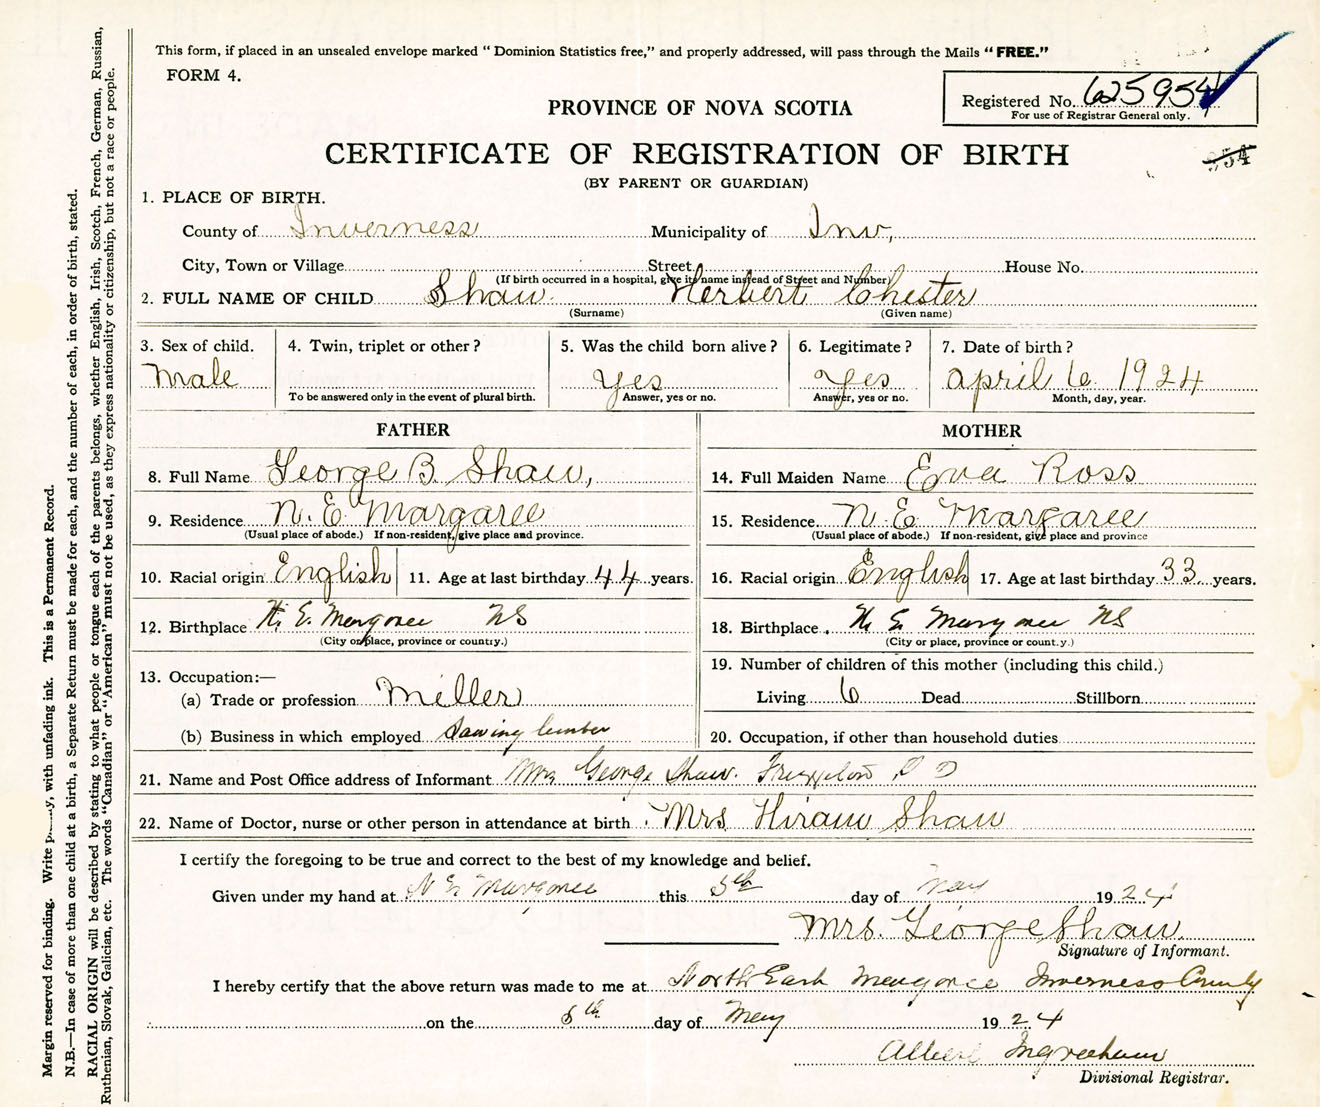 This form, if placed in an unsealed envelope marked “ Dominion Statistics free,” and properly addressed, will pass through the Mails “ FREE.”
FORM 4.
Registered No. 625954
For use of Registrar General only.
PROVINCE OF NOVA SCOTIA
CERTIFICATE OF REGISTRATION OF BIRTH
(BY PARENT OR GUARDIAN)
1. PLACE OF BIRTH.
County of Inverness Municipality of Inv,
City, Town or Village Street House No.
(If birth occurred in a hospital, give its name instead of Street and Number)
2. FULL NAME OF CHILD Shaw. Herbert Chester
(Surname) (Given name)
3. Sex of child. 4. Twin, triplet or other ? 5. Was the child born alive ? 6. Legitimate ? 7. Date of birth ?
Male Yes Yes April 6. 1924
To be answered only in the event of plural birth. Answer, yes or no. Answer, yes or no. Month, day, year.
FATHER MOTHER
8. Full Name George B. Shaw, 14. Full Maiden Name Eva Ross
9. Residence N. E. Margaree 15. Residence. N. E Margaree
(Usual place of abode.) If non-resident, give place and province. (Usual place of abode.) If non-resident, give place and province
10. Racial origin English 11. Age at last birthday 44 years. 16. Racial origin English 17. Age at last birthday 33 years.
12. Birthplace N. E. Margaree NS 18. Birthplace N E Margaree NS
(City or place, province or country.) (City or place, province or count.y.)
13. Occupation:— 19. Number of children of this mother (including this child.)
(a) Trade or profession Miller Living 6 Dead Stillborn
(b) Business in which employed Sawing lumber 20. Occupation, if other than household duties
21. Name and Post Office address of Informant Mrs George Shaw.
22. Name of Doctor, nurse or other person in attendance at birth Mrs Hiram Shaw
I certify the foregoing to be true and correct to the best of my knowledge and belief.
Given under my hand at N E. Margaree this 5th day of May 1924
Mrs. George Shaw.
Signature of Informant.
I hereby certify that the above return was made to me at North East Margaree Inverness County
on the 5th day of May 1924
Albert Ingraham
Divisional Registrar.
Margin reserved for binding. Write with unfading ink. This is a Permanent Record.
N.B.—In case of more than one child at a birth, a Separate Return must be made for each, and the number of each, in order of birth, stated.
RACIAL ORIGIN will be described by stating to what people or tongue each of the parents belongs, whether English, Irish, Scotch, French, German, Russian,
Ruthenian, Slovak, Galician, etc. The words “Canadian” or “American” must not be used, as they express nationality or citizenship, but not a race or people.